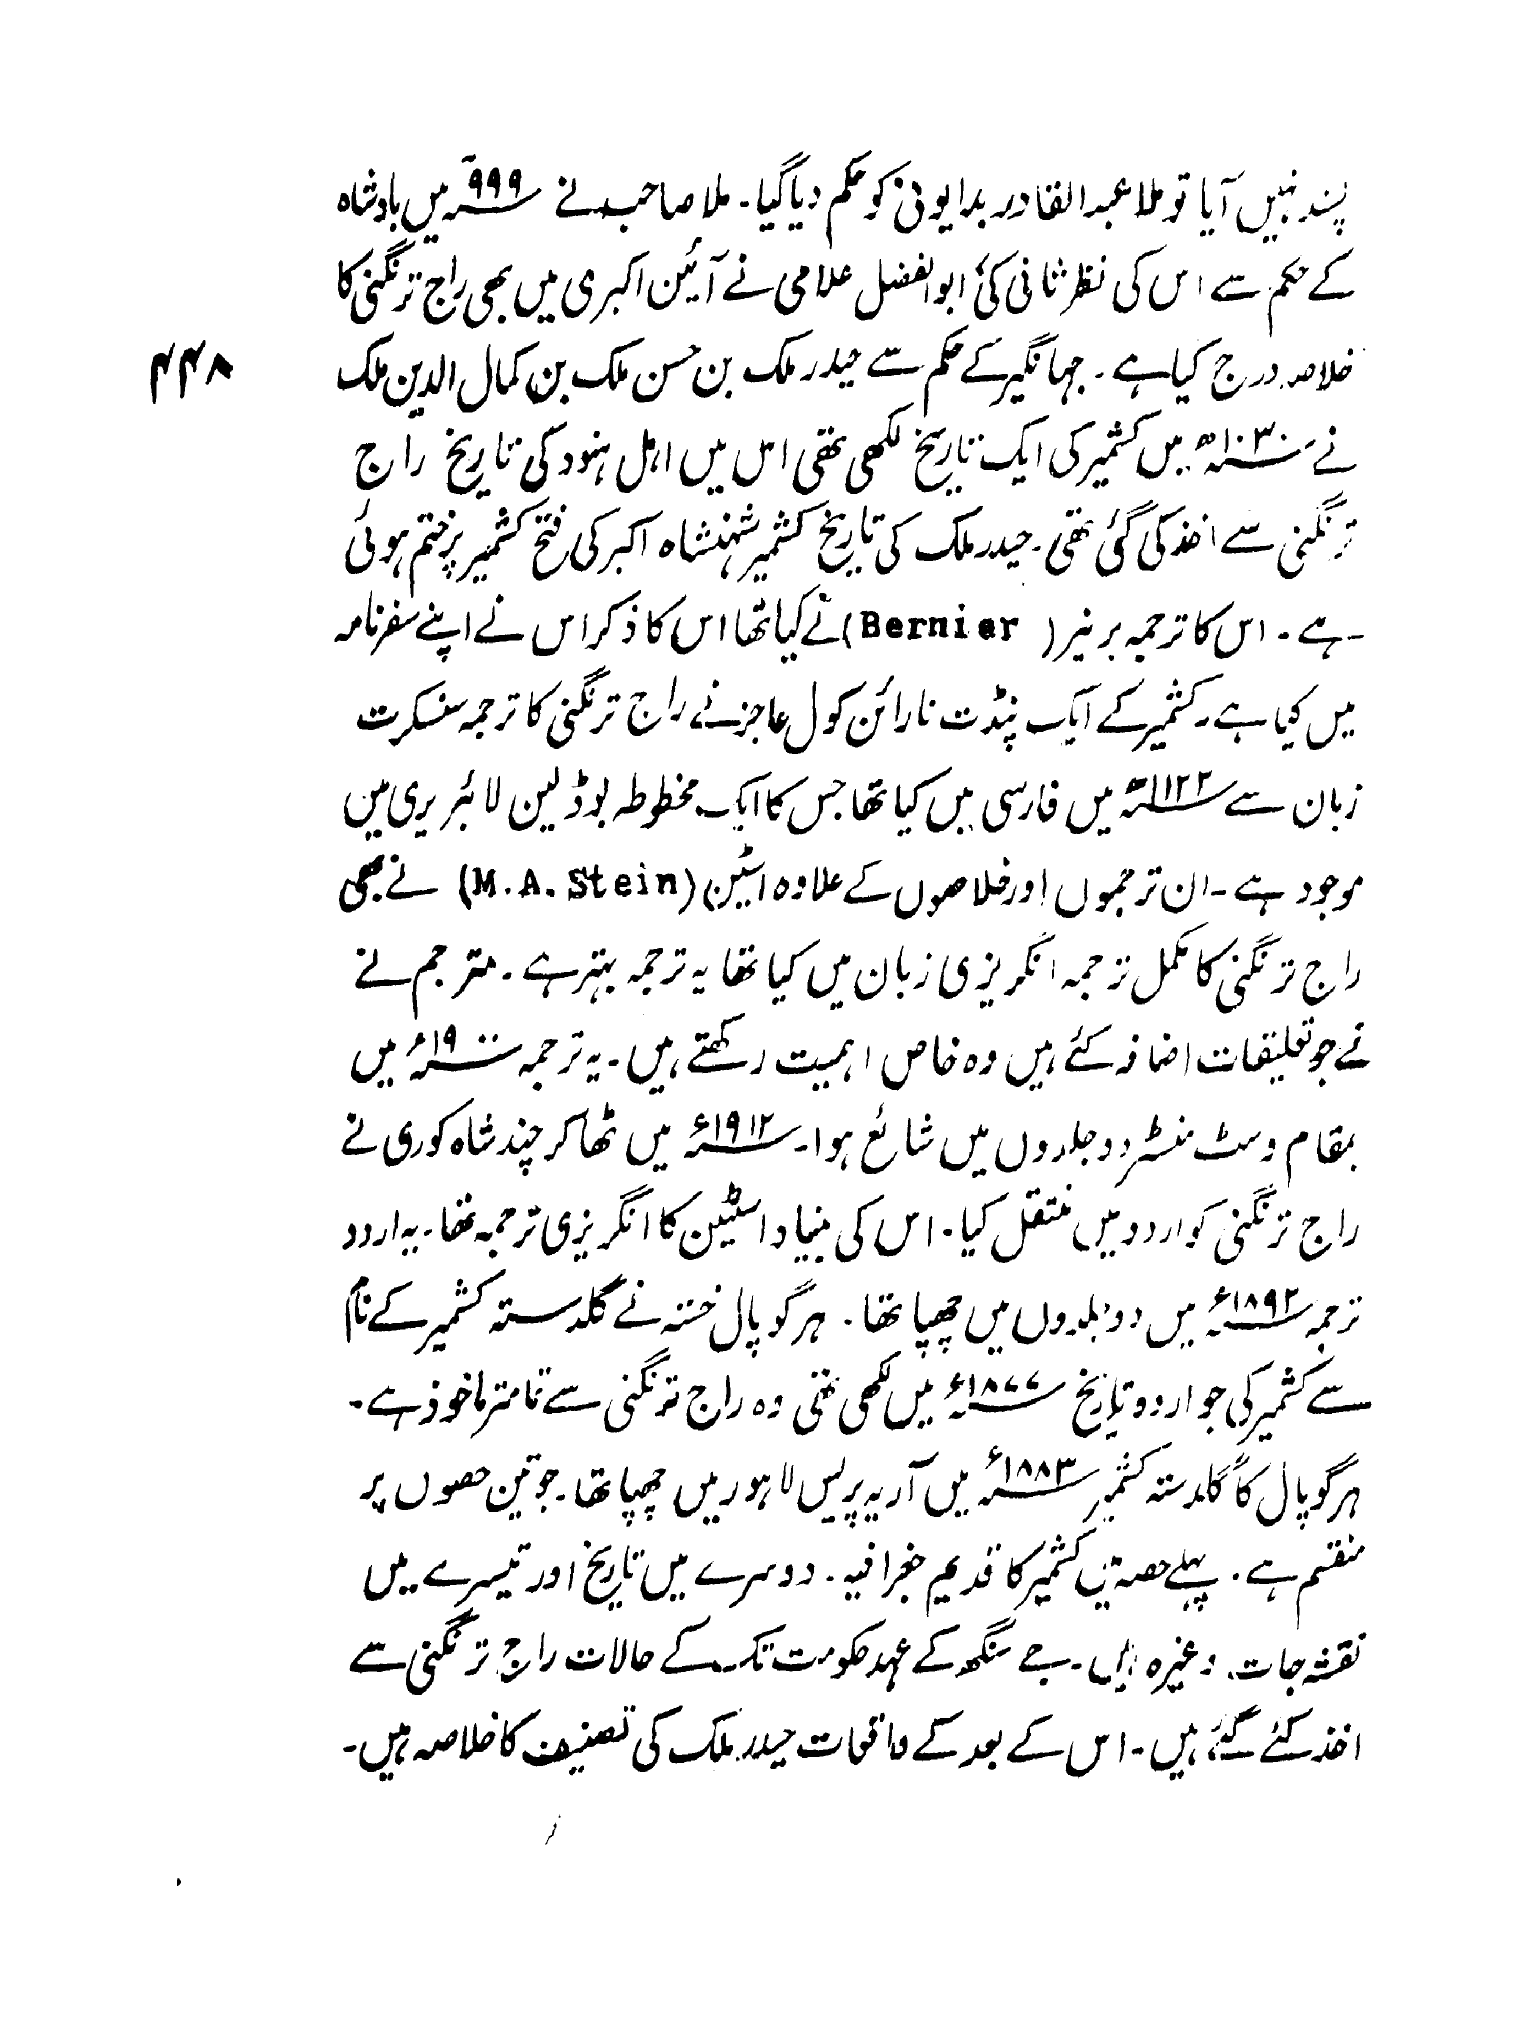 پسند نہیں آیا تو ملا عبدالقادر بدایونی کو حکم دیا گیا۔ ملا صاحب نے ۹۹۹ھ میں بادشاہ
کے حکم سے اس کی نظر ثانی کی ابوالفضل علامی نے آئین اکبری میں بھی راج ترنگنی کا
خلاصہ درج کیا ہے۔ جہانگیر کے حکم سے حیدر ملک بن حسن ملک بن کمال الدین ملک
۴۴۸
نے ۱۰۳۰ھ میں کشمیر کی ایک تاریخ لکھی تھی اس میں اہل ہنود کی تاریخ راج
ترنگنی سے اخذ کی گئی تھی۔ حیدر ملک کی تاریخ کشمیر شہنشاہ اکبر کی فتح کشمیر پر ختم ہوئی
ہے۔ اس کا ترجمہ برنیر (Bernier) نے کیا تھا اس کا ذکر اس نے اپنے سفرنامہ
میں کیا ہے۔ کشمیر کے ایک پنڈت نارائن کول عاجز نے راج ترنگنی کا ترجمہ سنسکرت
زبان سے ۱۱۲۲ھ میں فارسی میں کیا تھا جس کا ایک مخطوطہ بوڈلین لائبریری میں
موجود ہے۔ ان ترجموں اور خلاصوں کے علاوہ اسٹین (M.A. Stein) نے بھی
راج ترنگنی کا مکمل ترجمہ انگریزی زبان میں کیا تھا یہ ترجمہ بہتر ہے۔ مترجم نے
نے جو تعلیقات اضافہ کئے ہیں وہ خاص اہمیت رکھتے ہیں۔ یہ ترجمہ ۱۹۰۰ء میں
بمقام وسٹ منسٹر دو جلدوں میں شائع ہوا۔ ۱۹۱۲ء میں ٹھاکر چند شاہ کوری نے
راج ترنگنی کو اردو میں منتقل کیا۔ اس کی بنیاد اسٹین کا انگریزی ترجمہ تھا۔ یہ اردو
ترجمہ ۱۸۹۲ء میں دو جلدوں میں چھپا تھا۔ ہرگوپال خستہ نے گلدستہ کشمیر کے نام
سے کشمیر کی جو اردو تاریخ ۱۸۷۷ء میں لکھی تھی وہ راج ترنگنی سے تمامتر ماخوذ ہے۔
ہرگوپال کا گلدستہ کشمیر ۱۸۸۳ء میں آریہ پریس لاہور میں چھپا تھا۔ جو تین حصوں پر
منقسم ہے۔ پہلے حصہ میں کشمیر کا قدیم جغرافیہ۔ دوسرے میں تاریخ اور تیسرے میں
نقشہ جات وغیرہ ہیں۔ جے سنگھ کے عہد حکومت تک کے حالات راج ترنگنی سے
اخذ کئے گئے ہیں۔ اس کے بعد کے واقعات حیدر ملک کی تصنیف کا خلاصہ ہیں۔